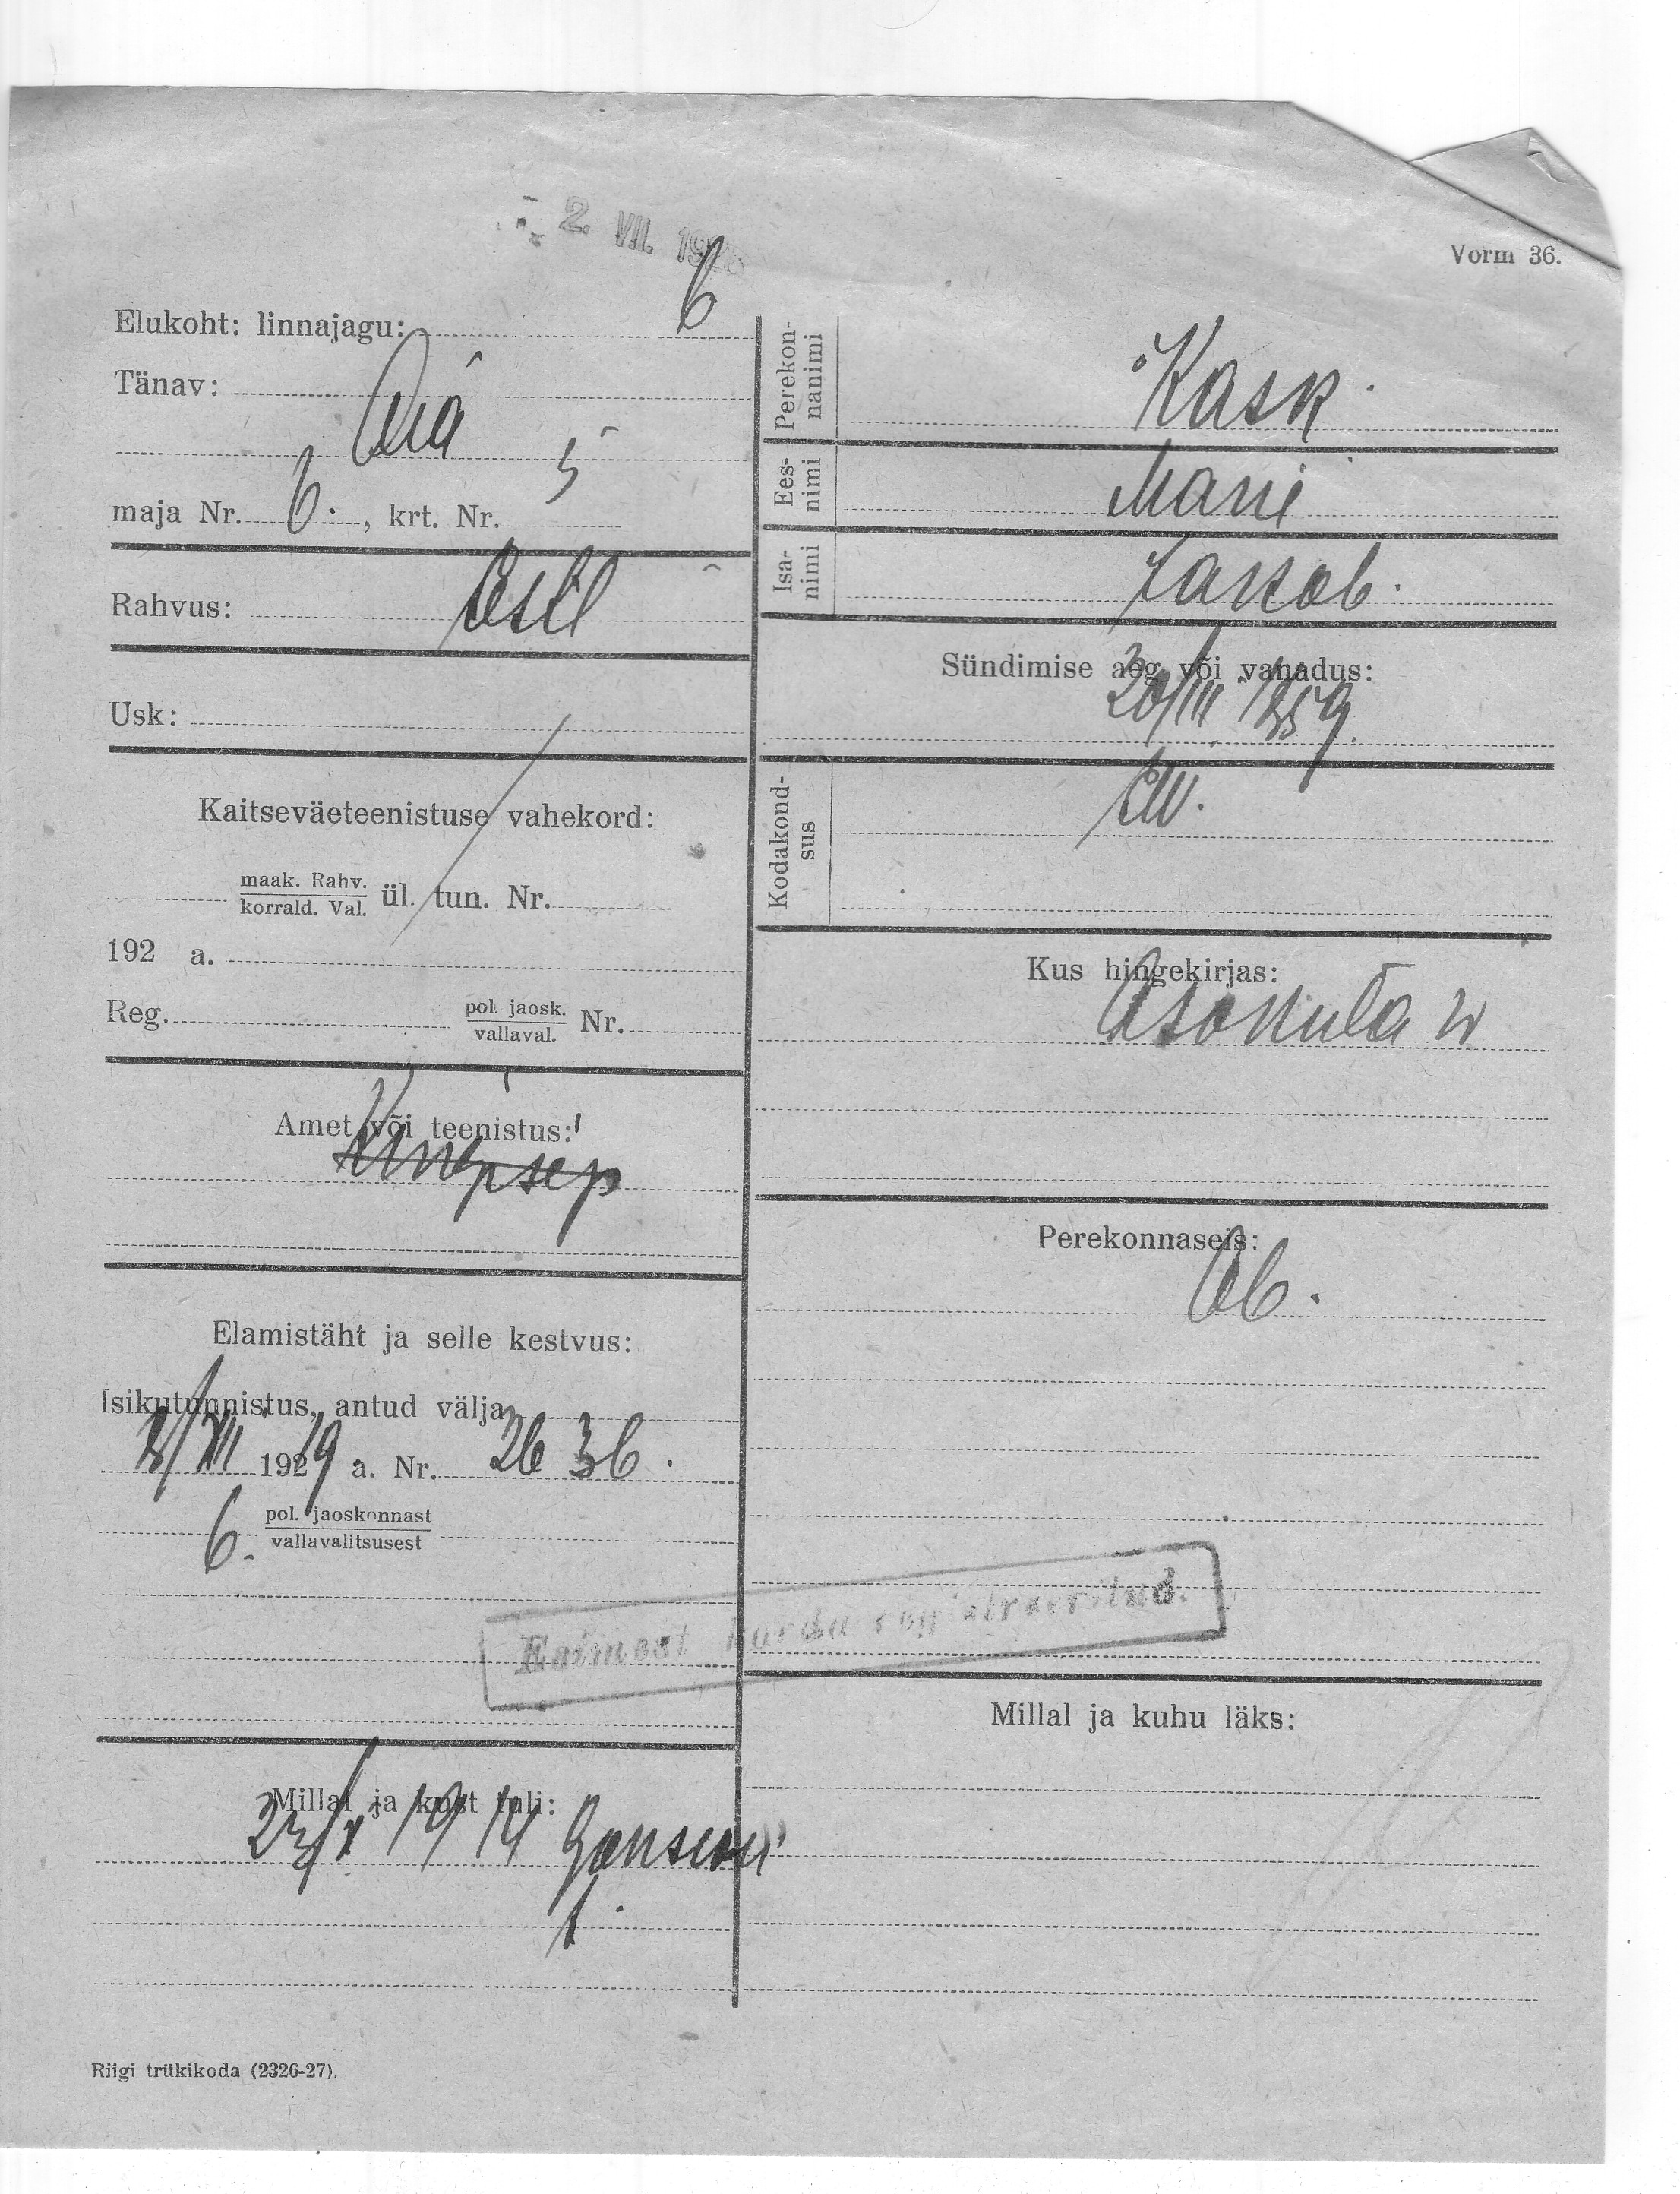 2. VII. 19
Vorm 36.
Elukoht: linnajagu: 6
Tänav:
Oia
maja Nr. 6. , krt. Nr. 5
Rahvus: Estl
Usk:
Kaitseväeteenistuse vahekord:
maak. Rahv.
korrald. Val. ül. tun. Nr.
192 a.
Reg. pol. jaosk.
vallaval. Nr.
Amet või teenistus:
Kingsep
Elamistäht ja selle kestvus:
Isikutunnistus, antud välja
1929 a. Nr. 2636.
6. pol. jaoskonnast
vallavalitsusest
Esimest korda registreeritud.
Millal ja kust tuli:
23/X 1914 Gonsiori
t.
Perekonnanimi Kask
Eesnimi Marie
Isanimi Jakob.
Sündimise aeg või vanadus:
20/III 1859.
Kodakondsus EW.
Kus hingekirjas:
Asokula w
Perekonnaseis:
Ab.
Millal ja kuhu läks:
Riigi trükikoda (2326-27).